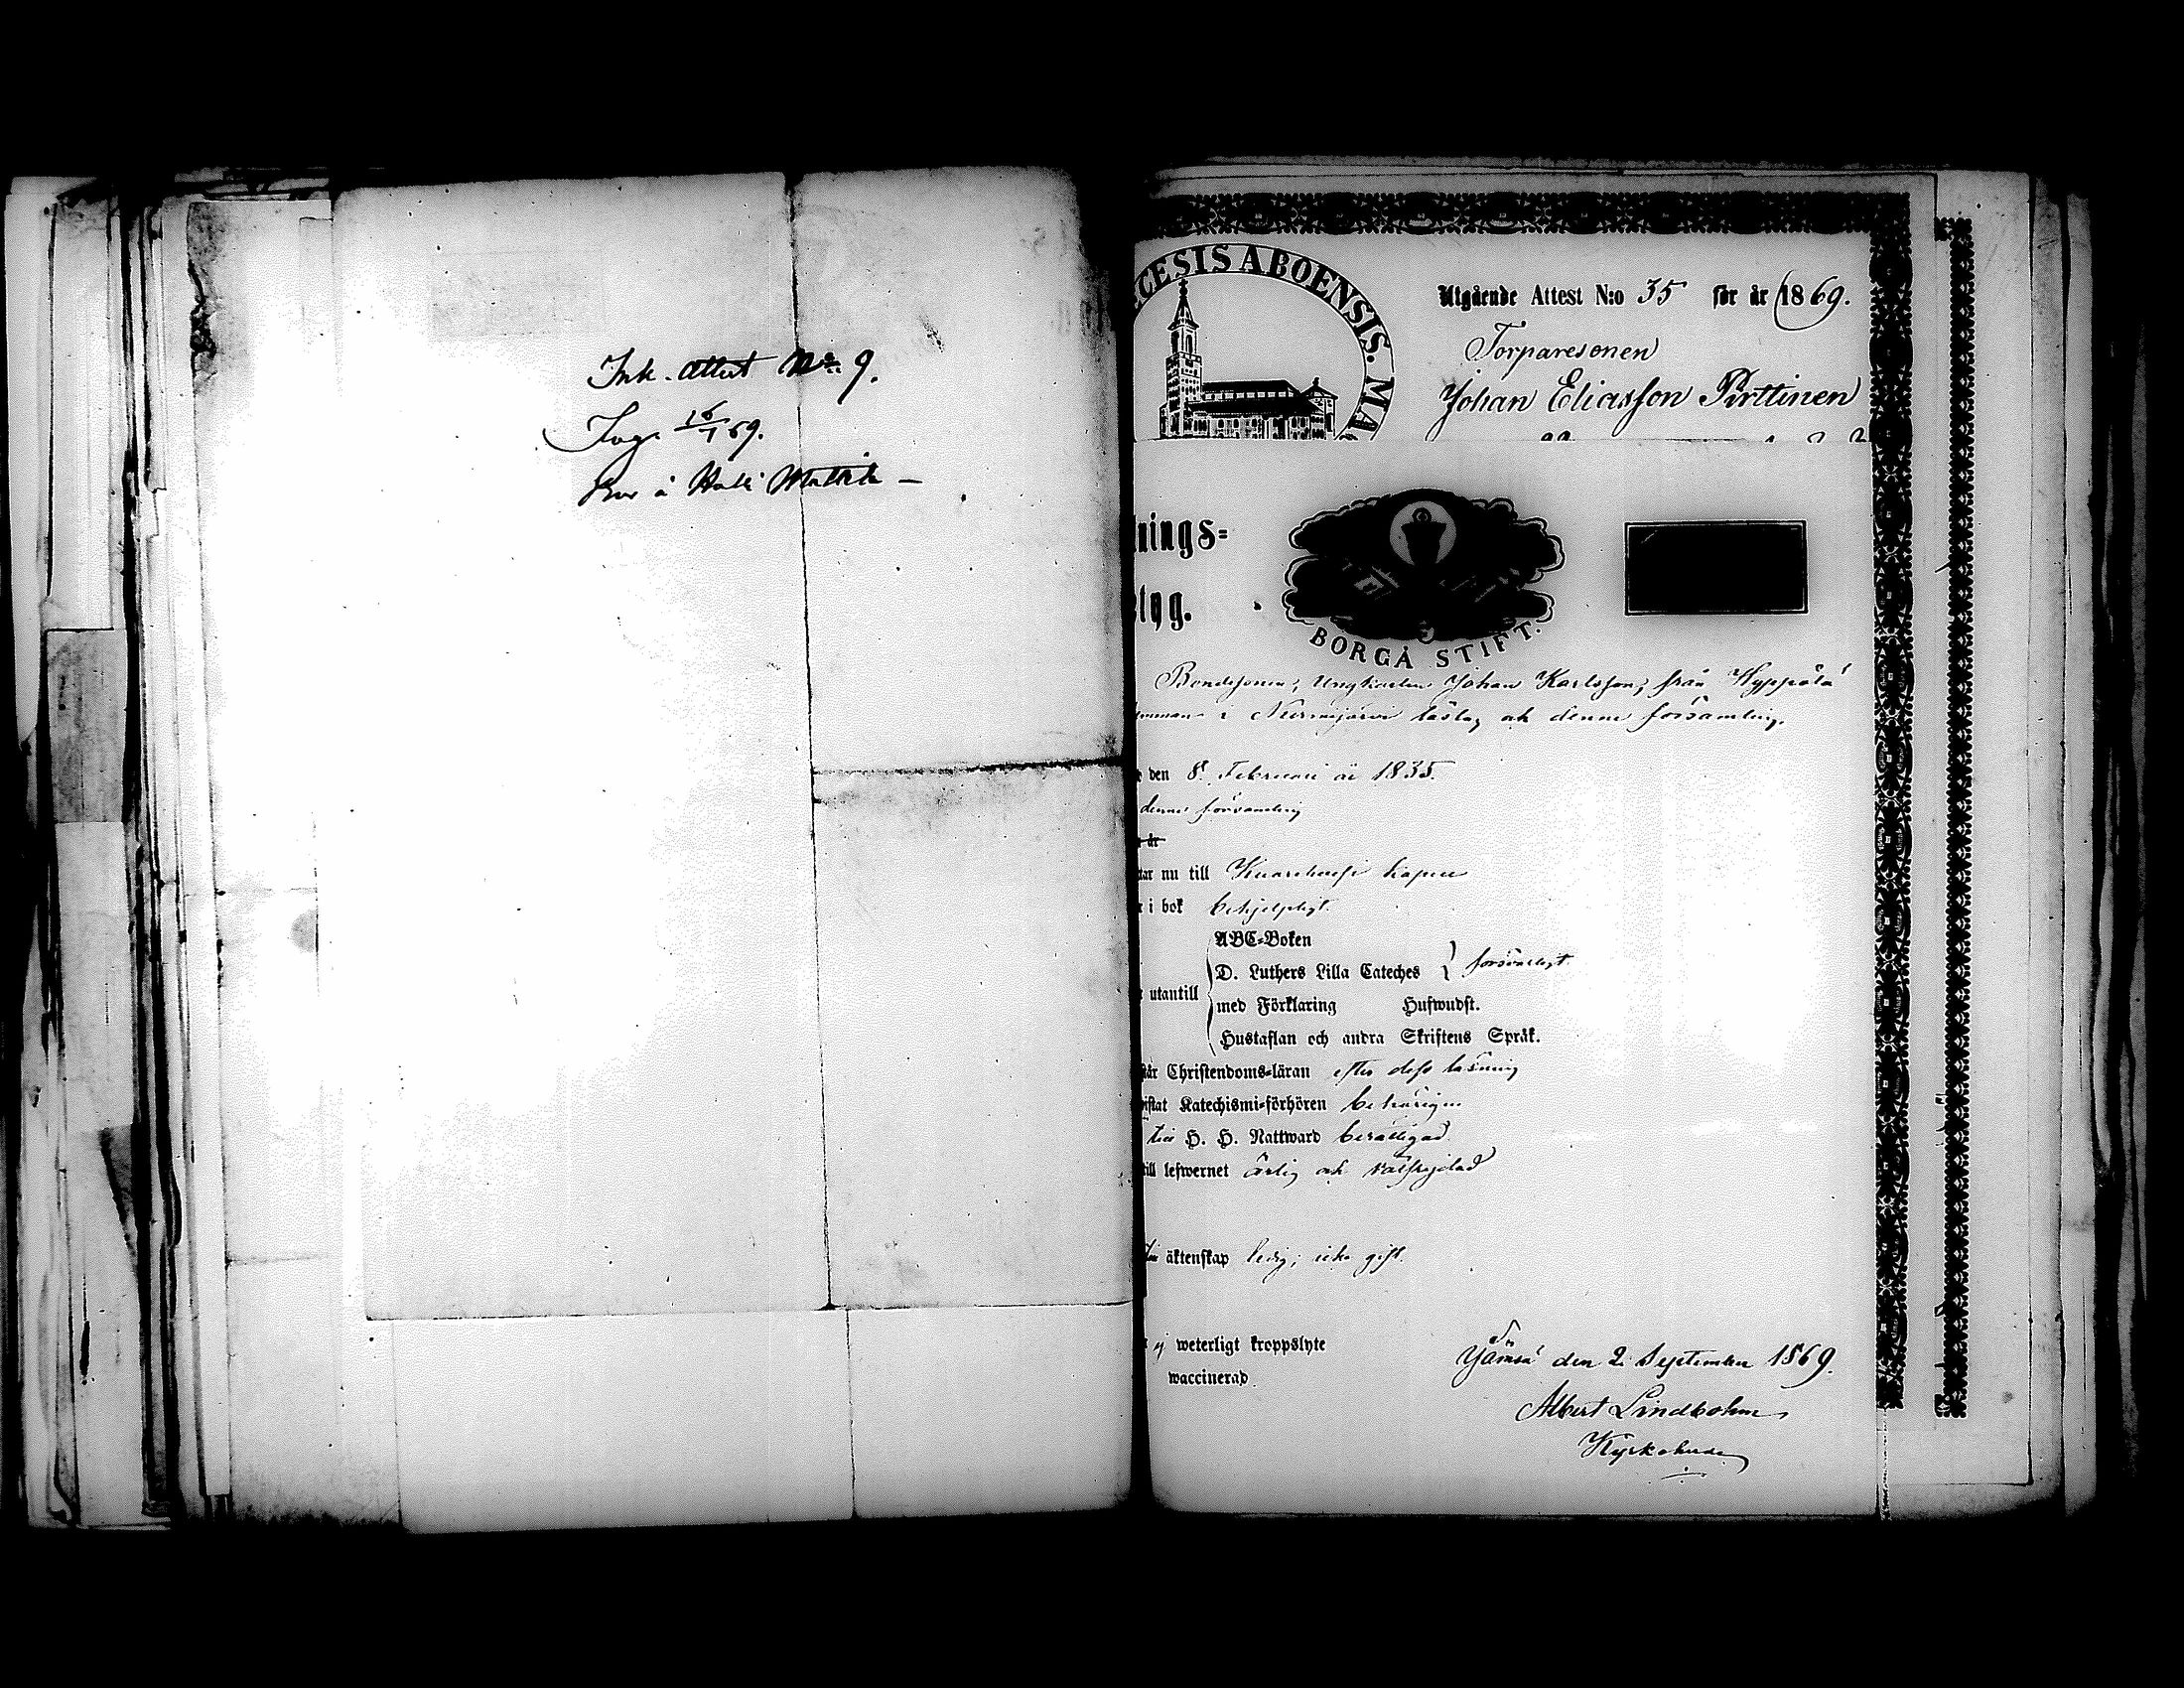 Ink. Attest No. 9.
16/1 69.
DIOECESIS ABOENSIS. MA
Utgående Attest N:o 35 för år 1869.
Torparesonen
Johan Eliasson Pirttinen
nings=
tyg.
BORGÅ STIFT.
Bondesonen, Ungkarlen Johan Karlsson, från Hyppölä
hemman i Nurmijärvi och denna församling.
den 8. Februari år 1835.
denna församling
år
nu till Kuorehvesi kapell
i bok behjelpligt.
ABC-Boken
D. Luthers Lilla Cateches } försvarligt.
utantill
med Förklaring Hufwudst.
Hustaflan och andra Skriftens Språk.
Christendoms-läran efter dess läsning
Katechismi-förhören behörigen
till H. H. Nattward berättigad.
till lefwernet ärlig och välfrejdad
äktenskap ledig; icke gift.
ej weterligt kroppslyte
waccinerad.
Jämsä den 2. September 1869.
Albert Lindbohm
Kyrkoherde